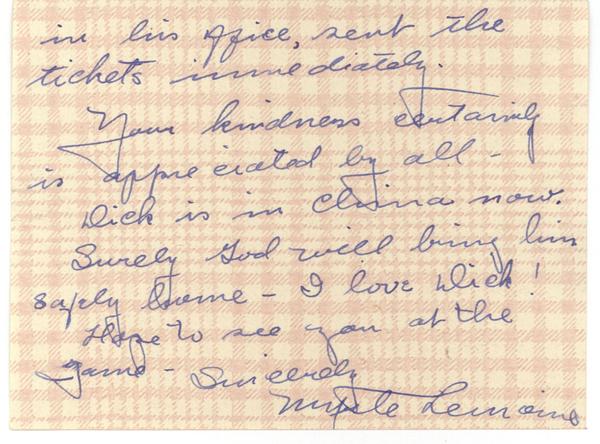 in his office, sent the
tickets immediately.
Your kindness certainly
is appreciated by all -
Dick is in China now.
Surely God will bring him
safely home - I love Dick!
Hope to see you at the
game - Sincerely
Myrtle Lemoine